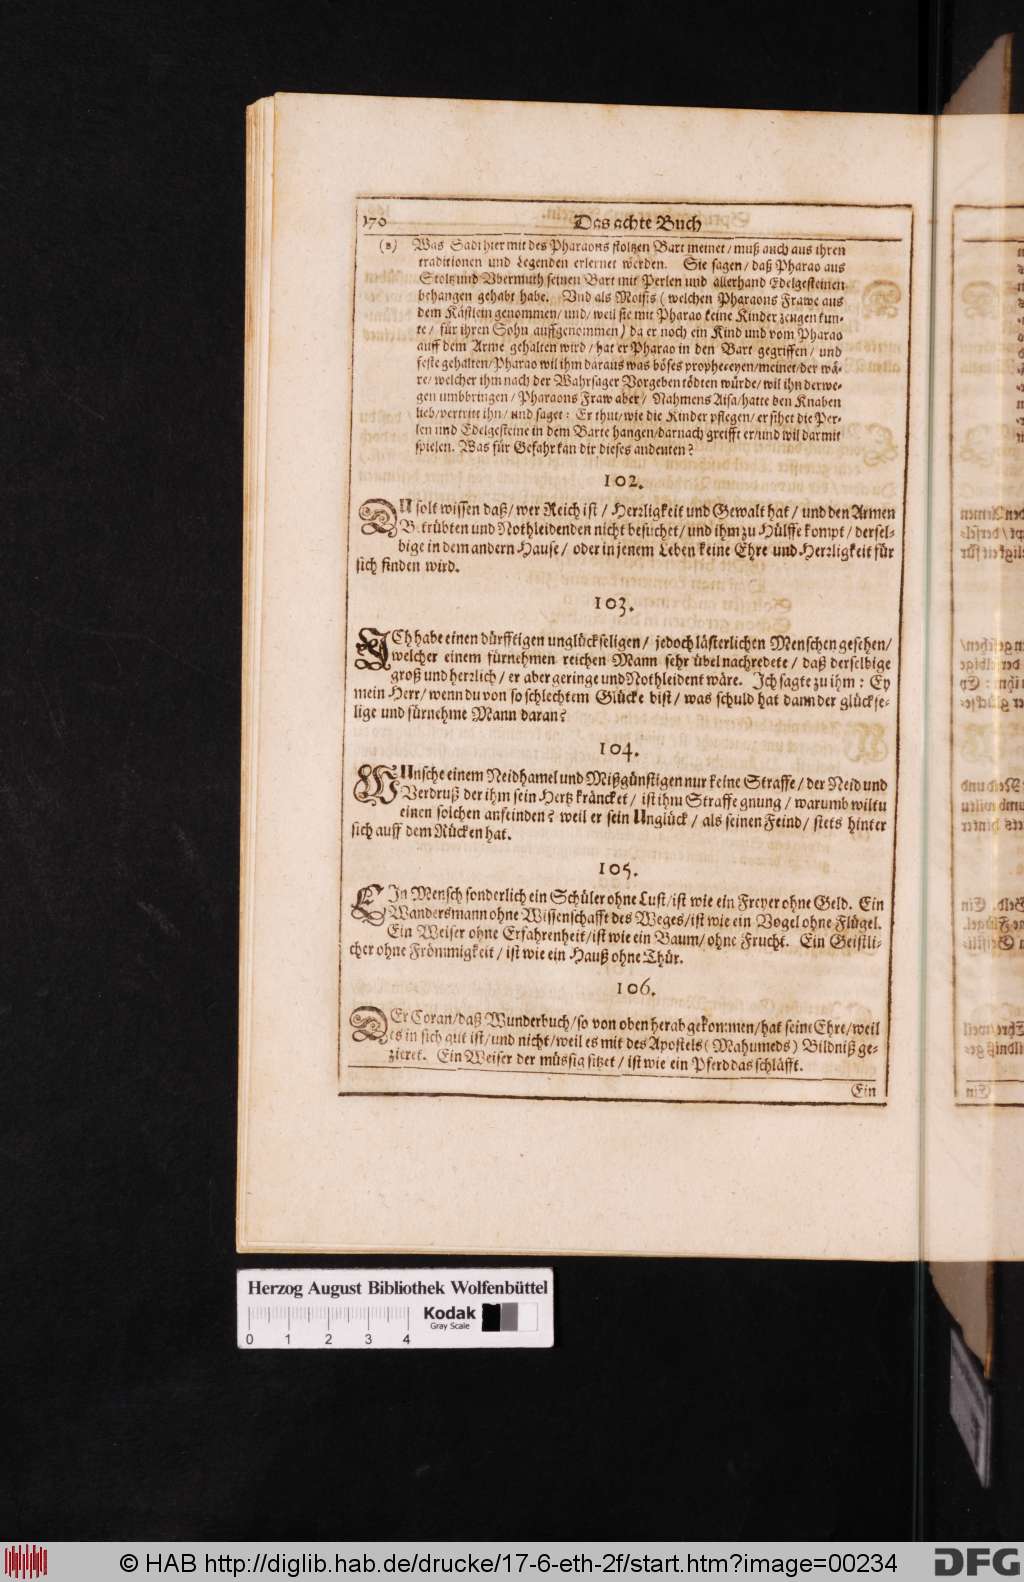 170
Das achte Buch
(a) Was Sadi hier mit des Pharaons stoltzen Bart meinet / muß auch aus ihren
traditionen und Legenden erlernet werden. Sie sagen / daß Pharao aus
Stoltz und Vbermuth seinen Bart mit Perlen und allerhand Edelgesteinen
behangen gehabt habe. Vnd als Moisis ( welchen Pharaons Frawe aus
dem Kästlein genommen / und / weil sie mit Pharao keine Kinder zeugen kun-
te / für ihren Sohn auffgenommen ) da er noch ein Kind und vom Pharao
auff dem Arme gehalten wird / hat er Pharao in den Bart gegriffen / und
feste gehalten / Pharao wil ihm daraus was böses propheceyen / meinet / der wä-
re / welcher ihm nach der Wahrsager Vorgeben tödten würde / wil ihn derwe-
gen umbbringen / Pharaons Fraw aber / Nahmens Aisa / hatte den Knaben
lieb / vertritt ihn / und saget : Er thut / wie die Kinder pflegen / er sihet die Per-
len und Edelgesteine in dem Barte hangen / darnach greifft er / und wil darmit
spielen. Was für Gefahr kan dir dieses andeuten ?
102.
DU solt wissen daß / wer Reich ist / Herrligkeit und Gewalt hat / und den Armen
Betrübten und Nothleidenden nicht besuchet / und ihm zu Hülffe kompt / dersel-
bige in dem andern Hause / oder in jenem Leben keine Ehre und Herrligkeit für
sich finden wird.
103.
ICh habe einen dürfftigen unglückseligen / jedoch lästerlichen Menschen gesehen /
welcher einem fürnehmen reichen Mann sehr übel nachredete / daß derselbige
groß und herrlich / er aber geringe und Nothleident wäre. Ich sagte zu ihm : Ey
mein Herr / wenn du von so schlechtem Glücke bist / was schuld hat dann der glückse-
lige und fürnehme Mann daran ?
104.
WUnsche einem Neidhamel und Mißgünstigen nur keine Straffe / der Neid und
Verdruß der ihm sein Hertz kräncket / ist ihm Straffe gnung / warumb wiltu
einen solchen anfeinden ? weil er sein Unglück / als seinen Feind / stets hinter
sich auff dem Rücken hat.
105.
EIn Mensch sonderlich ein Schüler ohne Lust / ist wie ein Freyer ohne Geld. Ein
Wandersmann ohne Wissenschafft des Weges / ist wie ein Vogel ohne Flügel.
Ein Weiser ohne Erfahrenheit / ist wie ein Baum / ohne Frucht. Ein Geistli-
cher ohne Frömmigkeit / ist wie ein Hauß ohne Thür.
106.
DEr Coran / daß Wunderbuch / so von oben herab gekommen / hat seine Ehre / weil
es in sich gut ist / und nicht / weil es mit des Apostels ( Mahumeds ) Bildniß ge-
zieret. Ein Weiser der müssig sitzet / ist wie ein Pferd das schläfft.
Ein
Herzog August Bibliothek Wolfenbüttel
Kodak
Gray Scale
0 1 2 3 4
© HAB http://diglib.hab.de/drucke/17-6-eth-2f/start.htm?image=00234
DFG